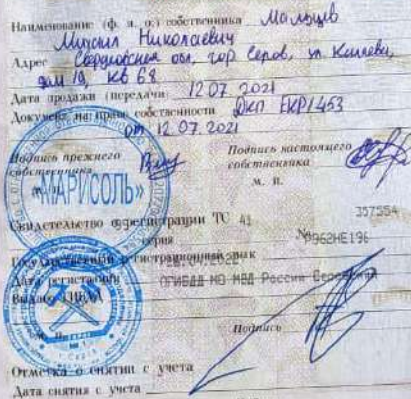 Наименование (ф. и. о.) собственника Мальцев
Михаил Николаевич
Адрес Свердловская обл, гор Серов, ул
дом 19, кв 68
Дата продажи (передачи) 12.07.2021
Документ на право собственности ДКП ЕКР1453
от 12.07.2021
Подпись прежнего собственника
Подпись настоящего собственника
м. п.
«МАРИСОЛЬ»
Свидетельство о регистрации ТС 41 357554
серия №
Государственный регистрационный знак Р962НЕ196
Дата регистрации
Выдано ГИБДД ОГИБДД МО МВД России
Подпись
Отметка о снятии с учета
Дата снятия с учета